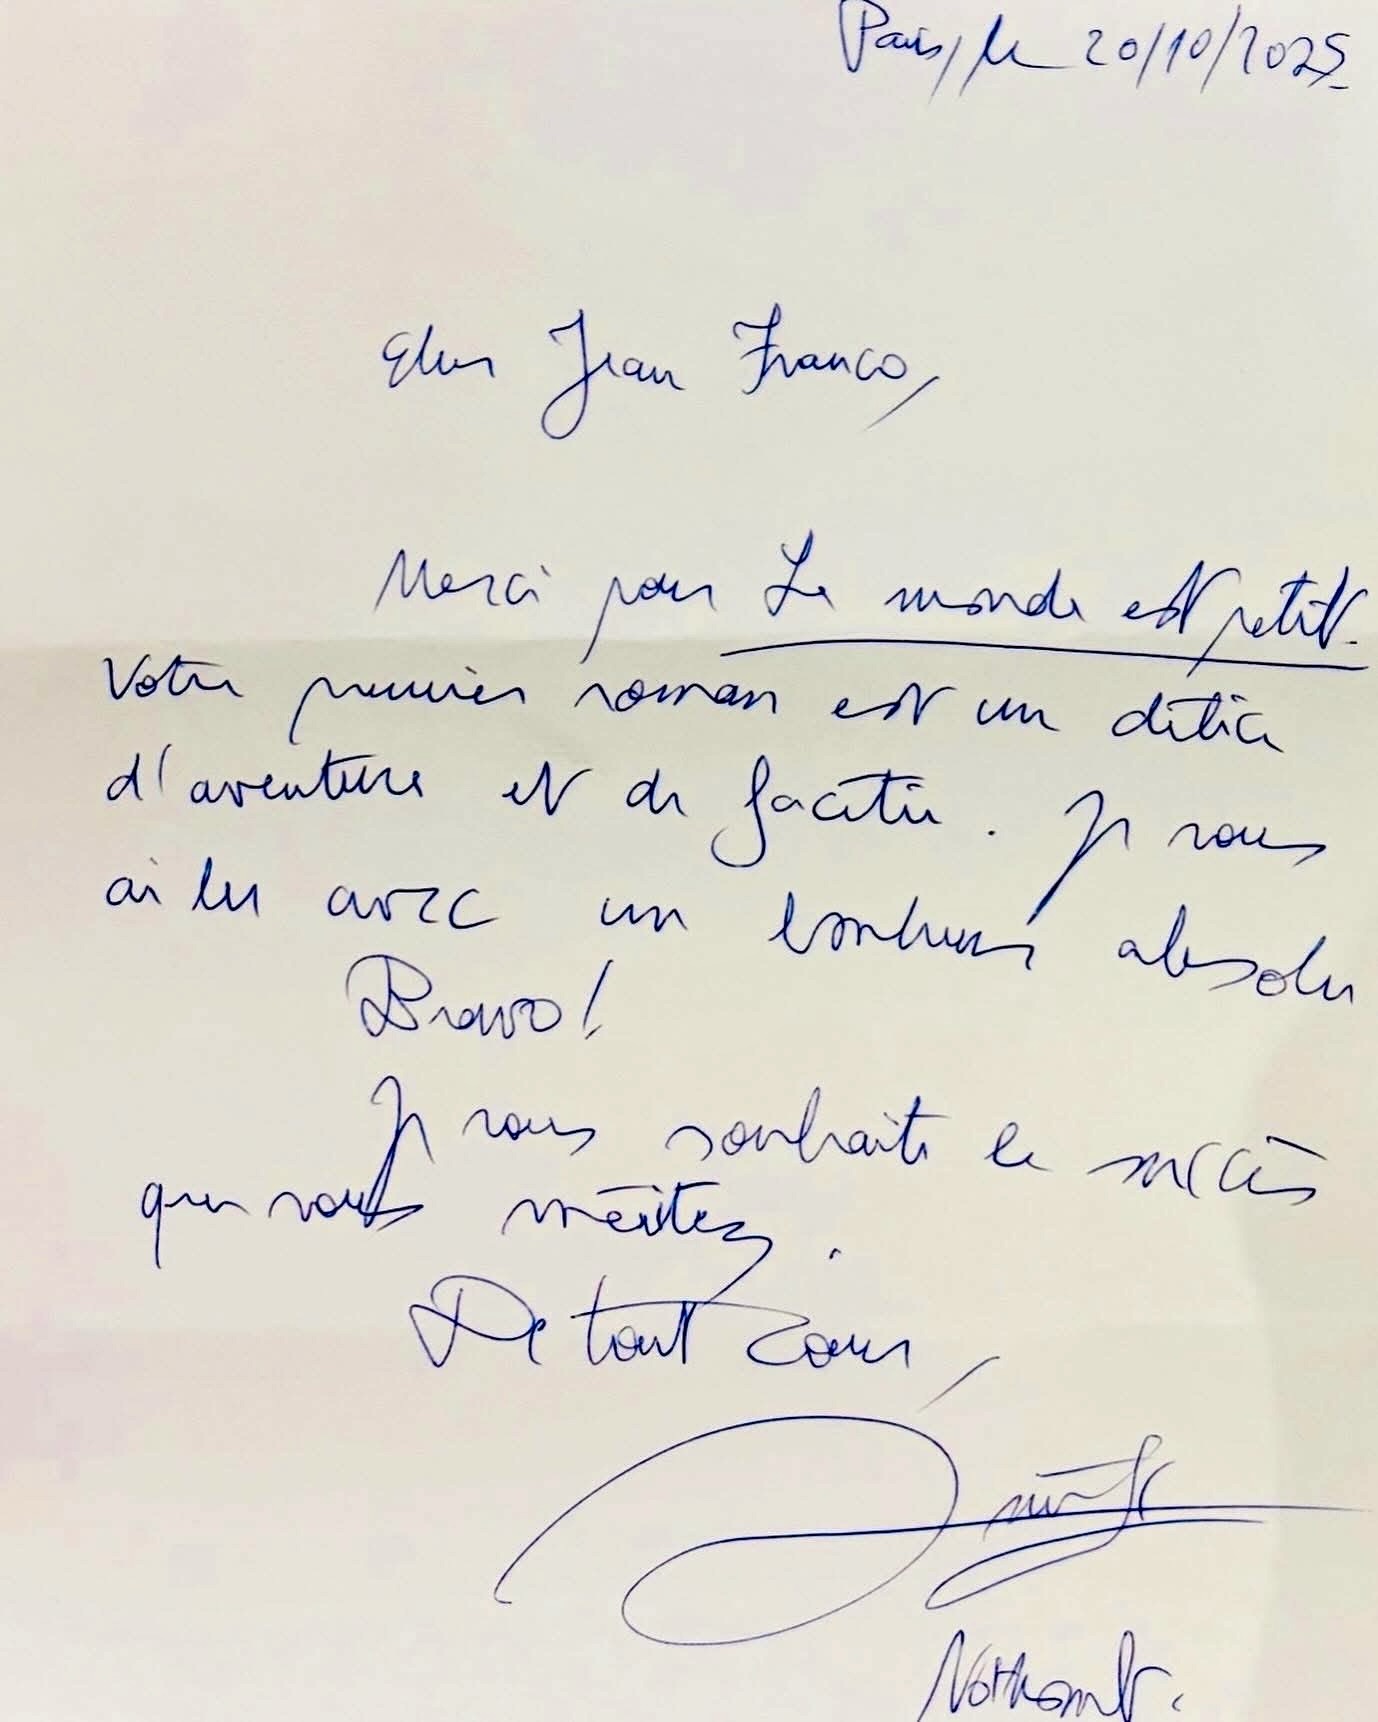 Paris, le 20/10/2025
Cher Jean Franco,
Merci pour Le monde est petit.
Votre premier roman est un délice
d'aventure et de facétie. Je vous
ai lu avec un bonheur absolu
Bravo!
Je vous souhaite le succès
que vous méritez.
De tout cœur,
Amélie
Nothomb.